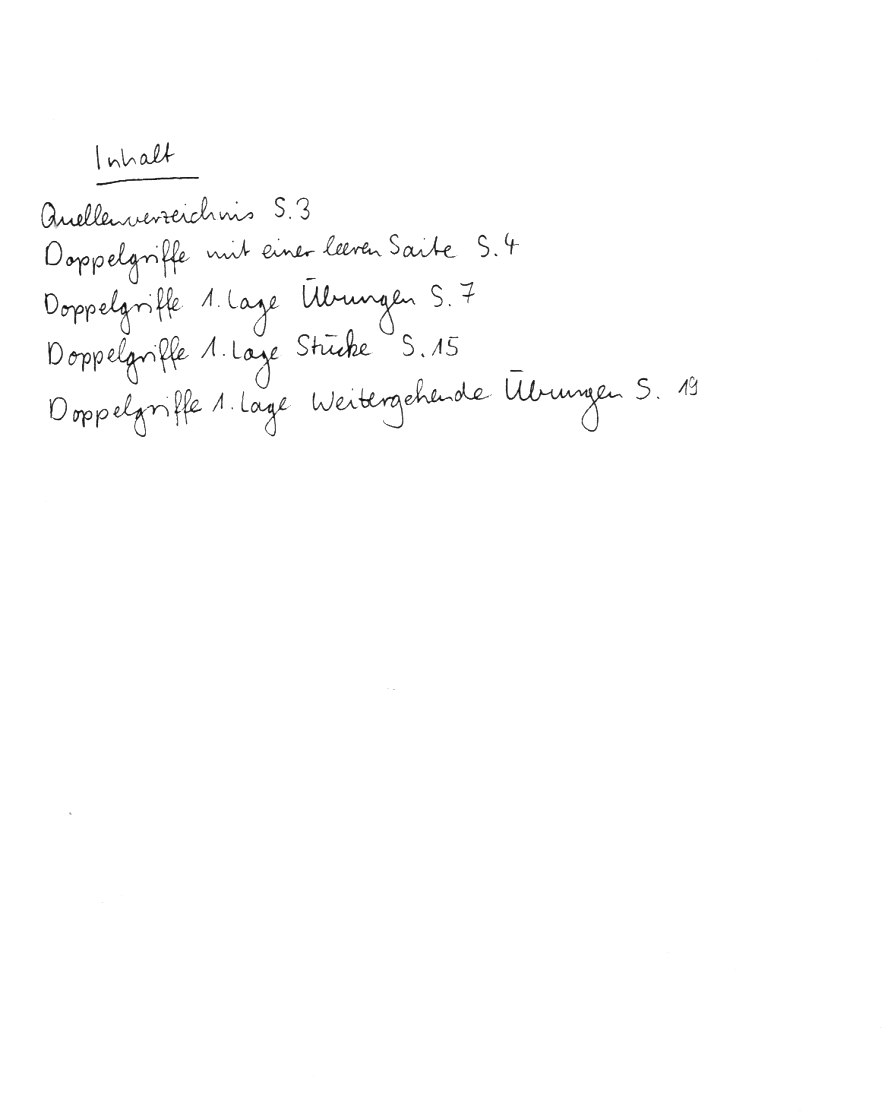 Inhalt
Quellenverzeichnis S.3
Doppelgriffe mit einer leeren Saite S.4
Doppelgriffe 1. Lage Übungen S.7
Doppelgriffe 1. Lage Stücke S.15
Doppelgriffe 1. Lage Weitergehende Übungen S. 19